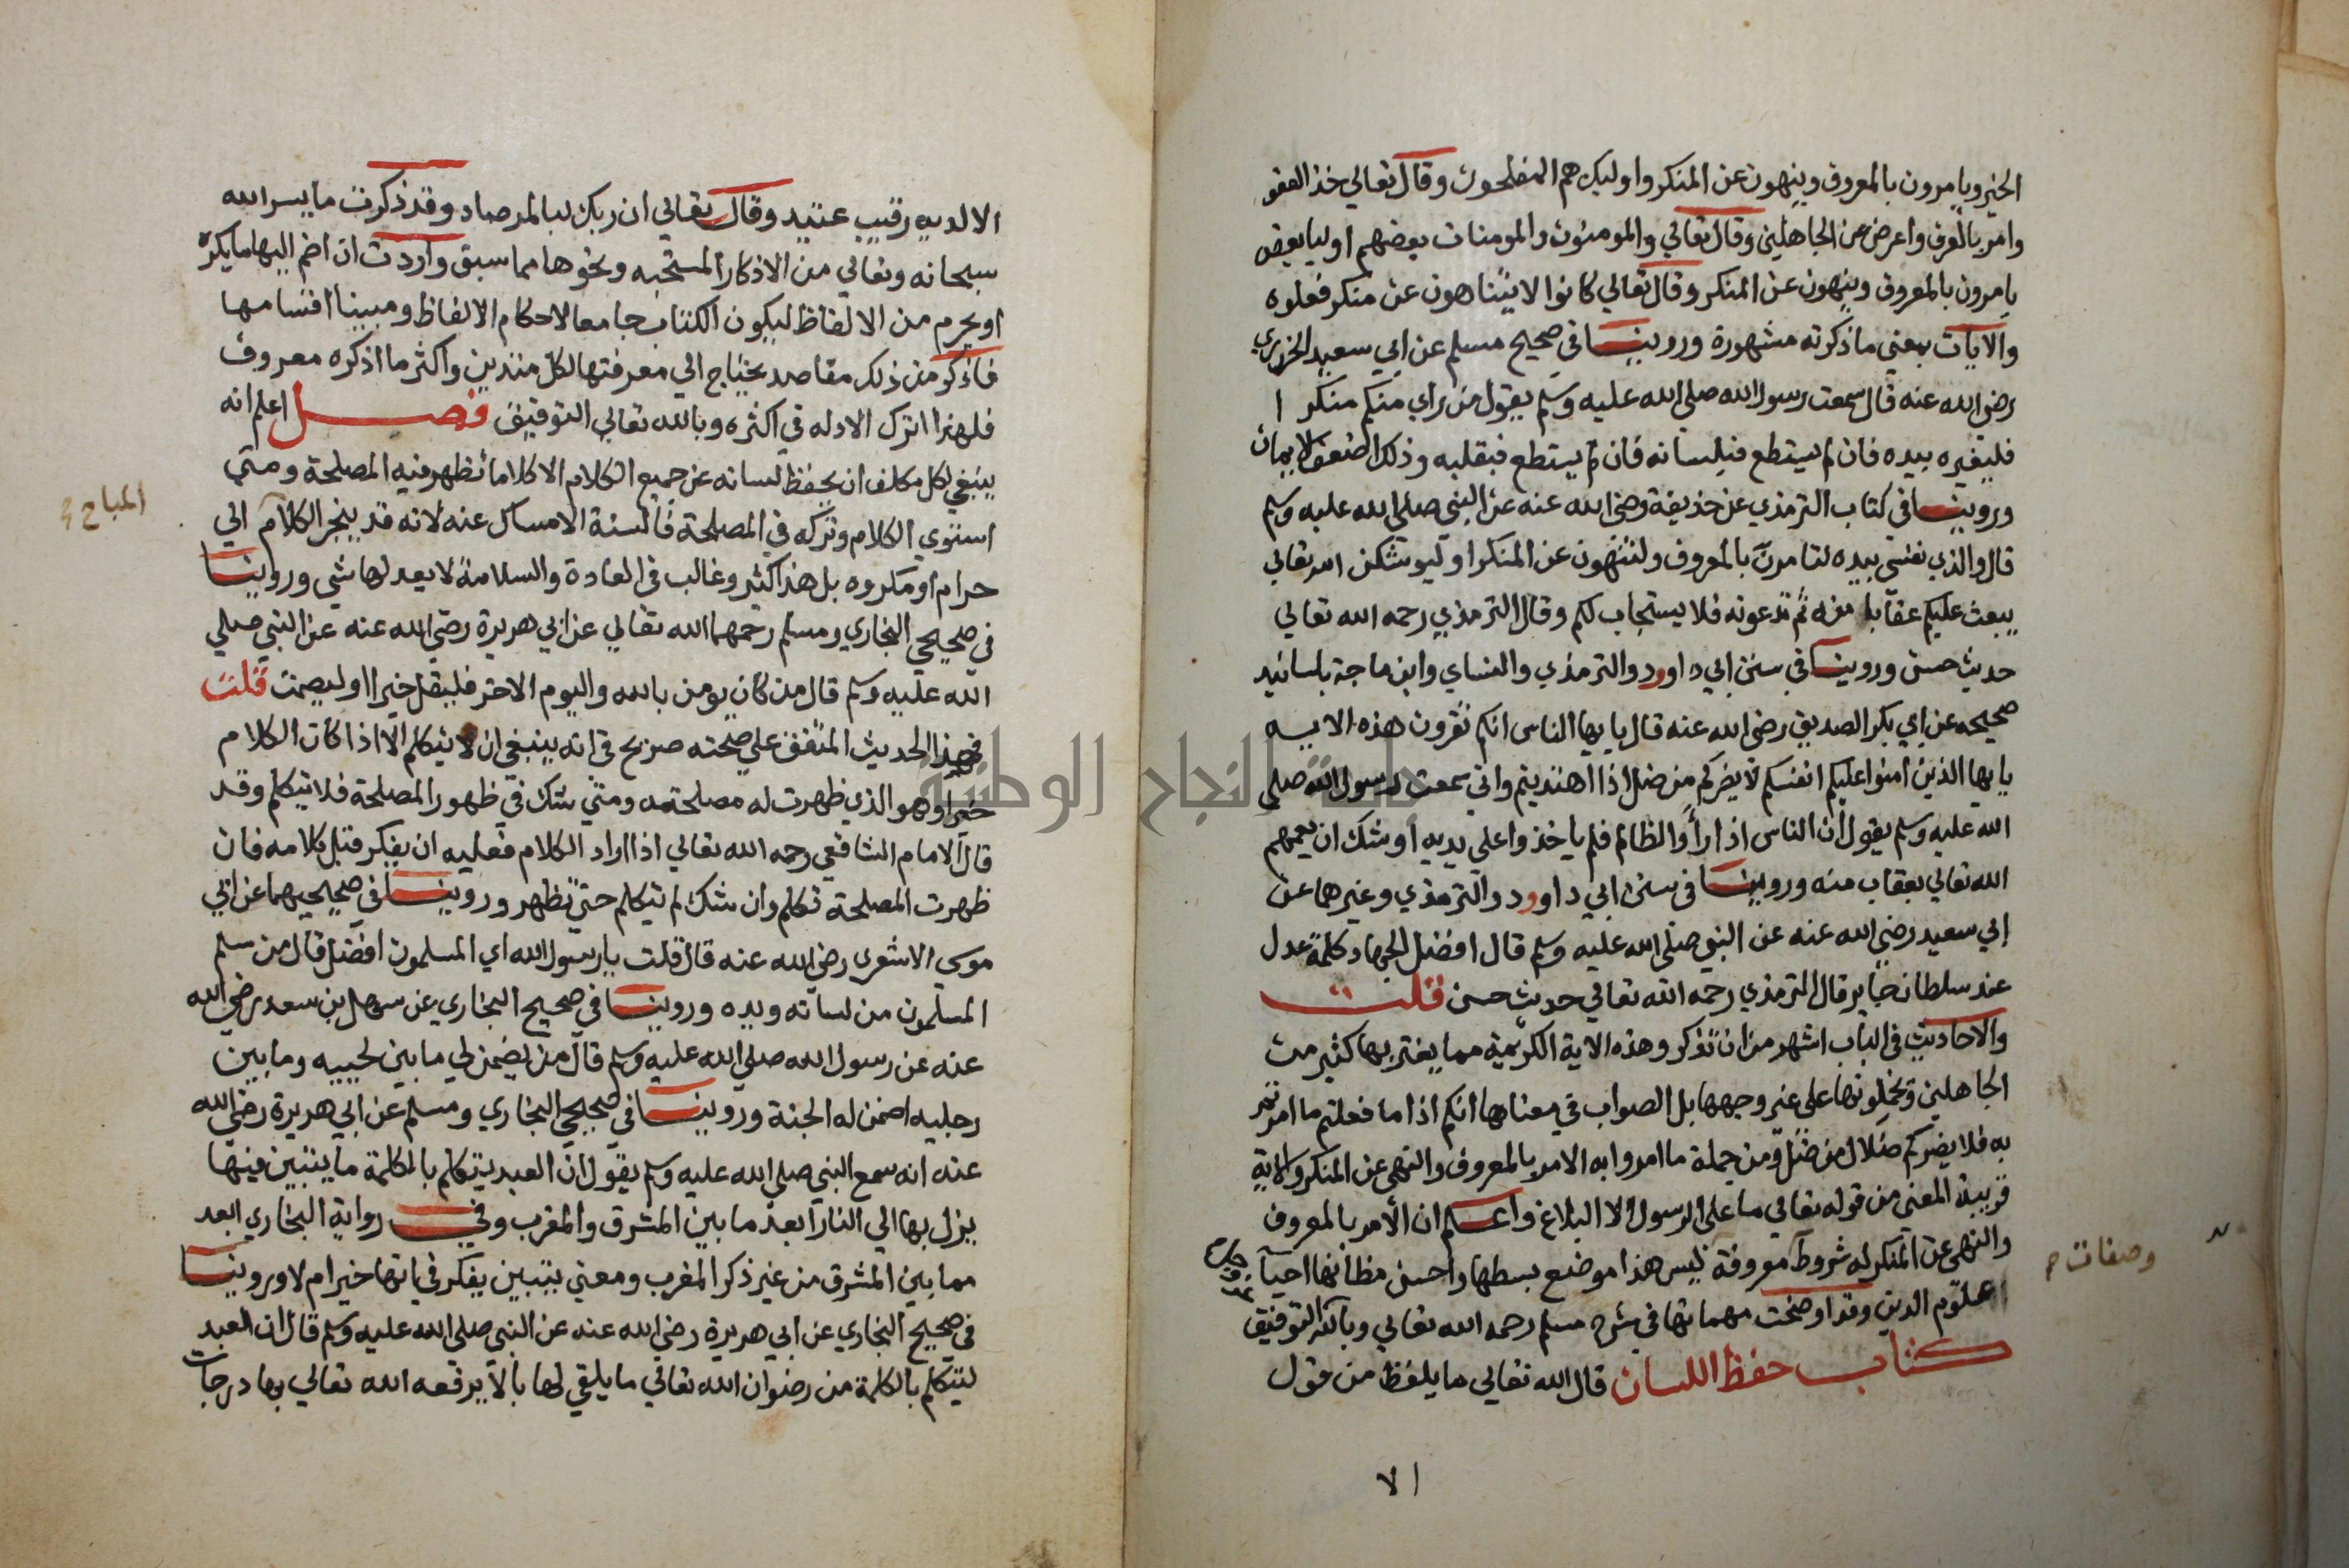 الخير ويامرون بالمعروف وينهون عن المنكر واوليك هم المفلحون وقال تعالي خذ العفو
وامر بالعرف واعرض عن الجاهلين وقال تعالي والمومنون والمومنات بعضهم اوليا بعض
يامرون بالمعروف وينهون عن المنكر وقال تعالي كانوا لا يتناهون عن منكر فعلوه
والايات بمعني ما ذكرته مشهورة وروينا في صحيح مسلم عن ابي سعيد الخدري
رضي الله عنه قال سمعت رسول الله صلي الله عليه وسلم يقول من راي منكم منكرا
فليغيره بيده فان لم يستطع فبلسانه فان لم يستطع فبقلبه وذلك اضعف الايمان
وروينا في كتاب الترمذي عن حذيفة رضي الله عنه عن النبي صلي الله عليه وسلم
قال والذي نفسي بيده لتامرن بالمعروف ولتنهون عن المنكر او ليوشكن الله تعالي
يبعث عليكم عقابا منه ثم تدعونه فلا يستجاب لكم وقال الترمذي رحمه الله تعالي
حديث حسن وروينا في سنن ابي داوود والترمذي والنساي وابن ماجة باسانيد
صحيحه عن ابي بكر الصديق رضي الله عنه قال يا يها الناس انكم تقرون هذه الايه
يا يها الذين امنوا عليكم انفسكم لا يضركم من ضل اذا اهتديتم واني سمعت رسول الله صلي
الله عليه وسلم يقول ان الناس اذا رأوا الظالم فلم ياخذوا علي يديه اوشك ان يعمهم
الله تعالي بعقاب منه وروينا في سنن ابي داوود والترمذي وغيرهما عن
ابي سعيد رضي الله عنه عن النبي صلي الله عليه وسلم قال افضل الجهاد كلمة عدل
عند سلطان جاير قال الترمذي رحمه الله تعالي حديث حسن قلت
والاحاديث في الباب اشهر من ان تذكر وهذه الاية الكريمة مما يغتر بها كثير من
الجاهلين ويحملونها علي غير وجهها بل الصواب في معناها انكم اذا ما فعلتم ما امرتم
به فلا يضركم ضلال من ضل ومن جملة ما امروا به الامر بالمعروف والنهي عن المنكر والاية
قريبة المعني من قوله تعالي ما علي الرسول الا البلاغ واعلم ان الأمر بالمعروف
والنهي عن المنكر له شروط معروفة ليس هذا موضع بسطها واحسن مظانها احيا
علوم الدين وقد اوضحت مهماتها في شرح مسلم رحمه الله تعالي وبالله التوفيق
كتاب حفظ اللسان قال الله تعالي ما يلفظ من قول
وصفات
٧١
الا لديه رقيب عتيد وقال تعالي ان ربك لبالمرصاد وقد ذكرت ما يسر الله
سبحانه وتعالي من الاذكار المستحبه ونحوها مما سبق واردت ان اضم اليها ما يكره
او يحرم من الالفاظ ليكون الكتاب جامعا لاحكام الالفاظ ومبينا اقسامها
فاذكر من ذلك مقاصد يحتاج الي معرفتها لكل متدين واكثر ما اذكره معروف
فلهذا اترك الادله في اكثره وبالله تعالي التوفيق فصل اعلم انه
ينبغي لكل مكلف ان يحفظ لسانه عن جميع الكلام الا كلاما تظهر فيه المصلحة ومتي
استوي الكلام وتركه في المصلحة فالسنة الامساك عنه لانه قد ينجر الكلام الي
المباح
حرام او مكروه بل هذا كثير وغالب في العادة والسلامة لا يعدلها شي وروينا
في صحيحي البخاري ومسلم رحمهما الله تعالي عن ابي هريرة رضي الله عنه عن النبي صلي
الله عليه وسلم قال من كان يومن بالله واليوم الاخر فليقل خيرا او ليصمت قلت
فهذا الحديث المتفق علي صحته صريح في انه ينبغي ان لا يتكلم الا اذا كان الكلام
خيرا وهو الذي ظهرت له مصلحته ومتي شك في ظهور المصلحة فلا يتكلم وقد
قال الامام الشافعي رحمه الله تعالي اذا اراد الكلام فعليه ان يفكر قبل كلامه فان
ظهرت المصلحة تكلم وان شك لم يتكلم حتي تظهر وروينا في صحيحيهما عن ابي
موسي الاشعري رضي الله عنه قال قلت يا رسول الله اي المسلمون افضل قال من سلم
المسلمون من لسانه ويده وروينا في صحيح البخاري عن سهل بن سعد رضي الله
عنه عن رسول الله صلي الله عليه وسلم قال من يضمن لي ما بين لحييه وما بين
رجليه اضمن له الجنة وروينا في صحيحي البخاري ومسلم عن ابي هريرة رضي الله
عنه انه سمع النبي صلي الله عليه وسلم يقول ان العبد يتكلم بالكلمة ما يتبين فيها
يزل بها الي النار ابعد ما بين المشرق والمغرب وفي رواية البخاري ابعد
مما بين المشرق من غير ذكر المغرب ومعني يتبين يفكر في انها خير ام لا وروينا
في صحيح البخاري عن ابي هريرة رضي الله عنه عن النبي صلي الله عليه وسلم قال ان العبد
ليتكلم بالكلمة من رضوان الله تعالي ما يلقي لها بالا يرفعه الله تعالي بها درجات
النجاح الوطنية